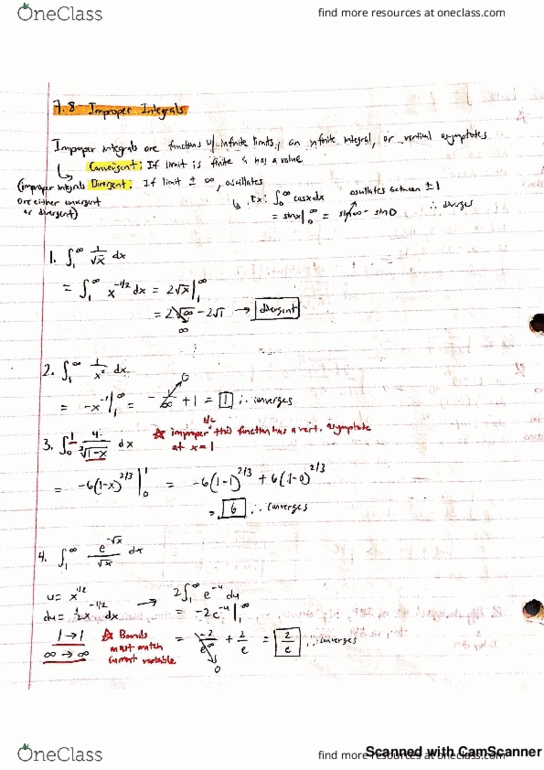 OneClass
find more resources at oneclass.com
7.8 Improper Integrals
Improper integrals are functions w/ infinite limits, an infinite integral, or vertical asymptotes
Convergent: If limit is finite & has a value
(improper integrals Divergent: If limit ± ∞, oscillates
are either convergent
or divergent)
↳ Ex: ∫₀^∞ cosx dx oscillates between ±1
= sinx|₀^∞ = sin∞ - sin0 ∴ diverges
1. ∫₁^∞ 1/√x dx
= ∫₁^∞ x^(-1/2) dx = 2√x|₁^∞
= 2√∞ - 2√1 → divergent
∞
2. ∫₁^∞ 1/x² dx
= -x⁻¹|₁^∞ = -1/∞ + 1 = 1 ∴ converges
0
3. ∫₀¹ 4/∛(1-x) dx
☆ improper b/c this function has a vert. asymptote
at x = 1
= -6(1-x)^(2/3)|₀¹ = -6(1-1)^(2/3) + 6(1-0)^(2/3)
= 6 ∴ converges
4. ∫₁^∞ e^(-√x)/√x dx
u = x^(1/2) → 2∫₁^∞ e^(-u) du
du = ½x^(-1/2) dx = -2e^(-u)|₁^∞
1 → 1 ☆ Bounds
∞ → ∞ must match
current variable
= -2/e^∞ + 2/e = 2/e ∴ converges
0
OneClass
find more resources at oneclass.com
Scanned with CamScanner